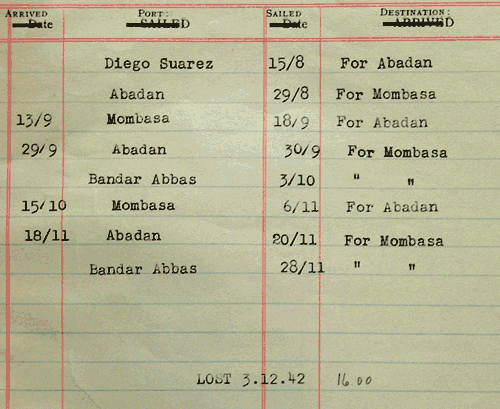 ARRIVED PORT: SAILED DESTINATION:
Date SAILED Date ARRIVED
Diego Suarez 15/8 For Abadan
Abadan 29/8 For Mombasa
13/9 Mombasa 18/9 For Abadan
29/9 Abadan 30/9 For Mombasa
Bandar Abbas 3/10 " "
15/10 Mombasa 6/11 For Abadan
18/11 Abadan 20/11 For Mombasa
Bandar Abbas 28/11 " "
LOST 3.12.42 16.00